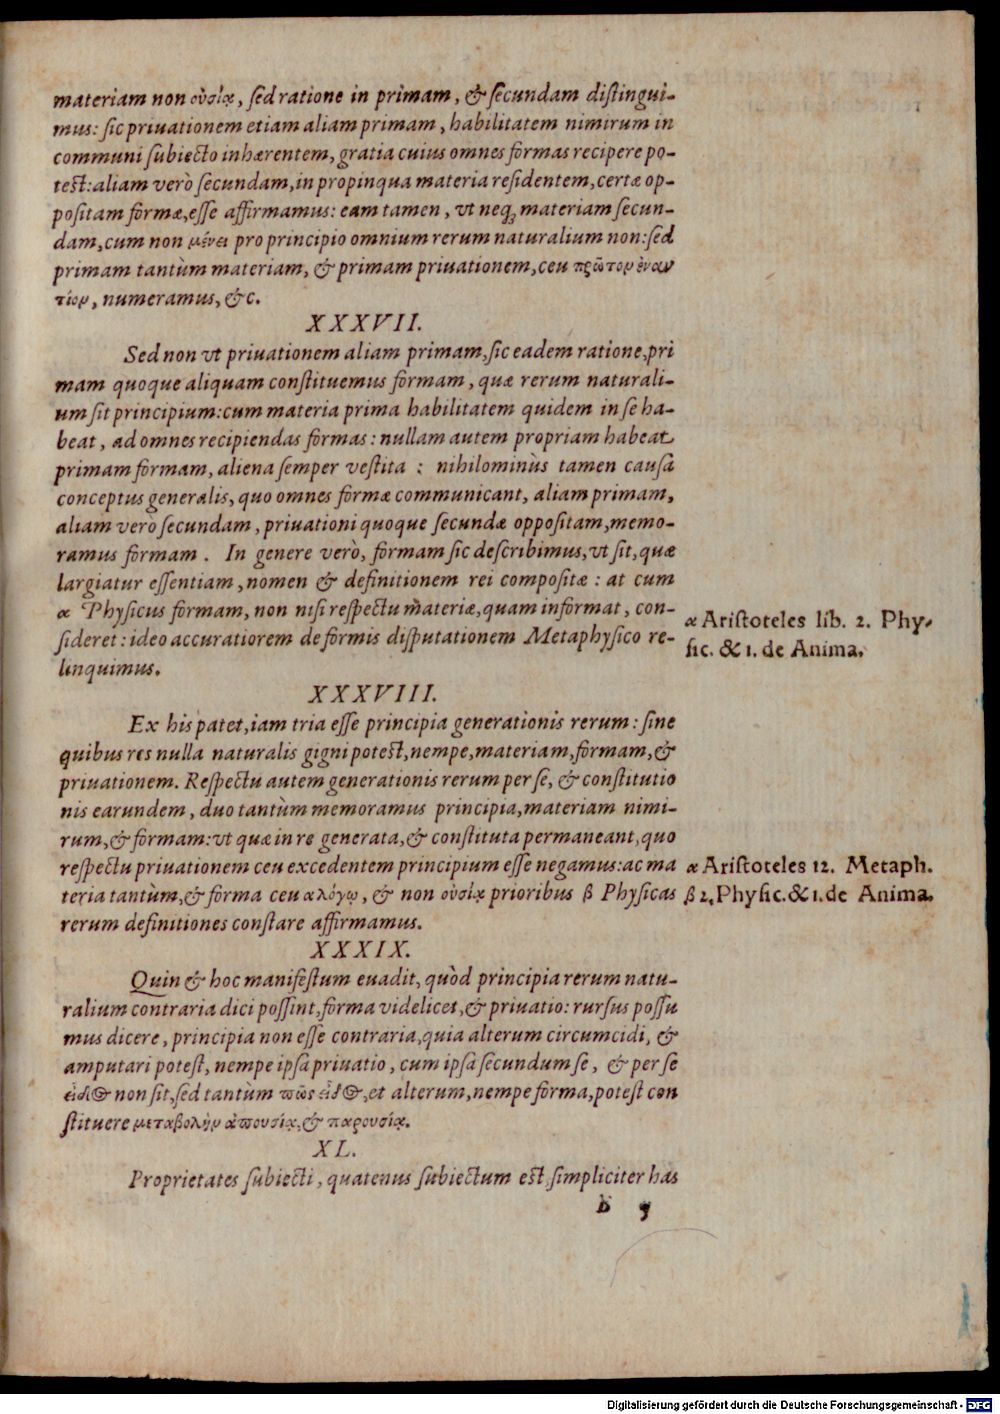 materiam non οὐσίᾳ, sed ratione in primam, & secundam distingui-
mus: sic priuationem etiam aliam primam, habilitatem nimirum in
communi subiecto inhærentem, gratia cuius omnes formas recipere po-
test: aliam verò secundam, in propinqua materia residentem, certæ op-
positam formæ, esse affirmamus: eam tamen, vt neq; materiam secun-
dam, cum non μένει pro principio omnium rerum naturalium non: sed
primam tantùm materiam, & primam priuationem, ceu πρῶτον ἐναν
τίον, numeramus, &c.
XXXVII.
Sed non vt priuationem aliam primam, sic eadem ratione, pri
mam quoque aliquam constituemus formam, quæ rerum naturali-
um sit principium: cum materia prima habilitatem quidem in se ha-
beat, ad omnes recipiendas formas: nullam autem propriam habeat
primam formam, aliena semper vestita: nihilominùs tamen causa
conceptus generalis, quo omnes formæ communicant, aliam primam,
aliam verò secundam, priuationi quoque secundæ oppositam, memo-
ramus formam. In genere verò, formam sic describimus, vt sit, quæ
largiatur essentiam, nomen & definitionem rei compositæ: at cum
α Physicus formam, non nisi respectu materiæ, quam informat, con-
sideret: ideo accuratiorem de formis disputationem Metaphysico re-
linquimus.
α Aristoteles lib. 2. Phy-
sic. & 1. de Anima.
XXXVIII.
Ex his patet, iam tria esse principia generationis rerum: sine
quibus res nulla naturalis gigni potest, nempe, materiam, formam, &
priuationem. Respectu autem generationis rerum per se, & constitutio
nis earundem, duo tantùm memoramus principia, materiam nimi-
rum, & formam: vt quæ in re generata, & constituta permaneant, quo
respectu priuationem ceu excedentem principium esse negamus: ac ma
teria tantùm, & forma ceu αλόγῳ, & non οὐσίᾳ prioribus β Physicas
rerum definitiones constare affirmamus.
α Aristoteles 12. Metaph.
β 2. Physic. & 1. de Anima.
XXXIX.
Quin & hoc manifestum euadit, quòd principia rerum natu-
ralium contraria dici possint, forma videlicet, & priuatio: rursus possu
mus dicere, principia non esse contraria, quia alterum circumcidi, &
amputari potest, nempe ipsa priuatio, cum ipsa secundum se, & per se
εἶδος non sit, sed tantùm πῶς εἶδος, et alterum, nempe forma, potest con
stituere μεταβολὴν ἀπουσίᾳ, & παρουσίᾳ.
XL.
Proprietates subiecti, quatenus subiectum est, simpliciter has
b 3
Digitalisierung gefördert durch die Deutsche Forschungsgemeinschaft - DFG